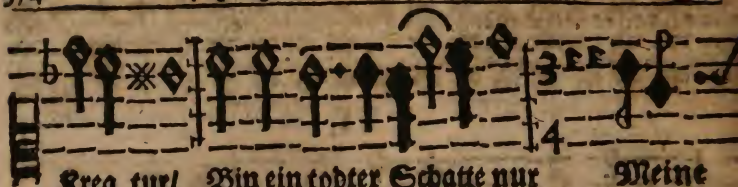 Krea tur/ Bin ein todter Schatte nur Meine